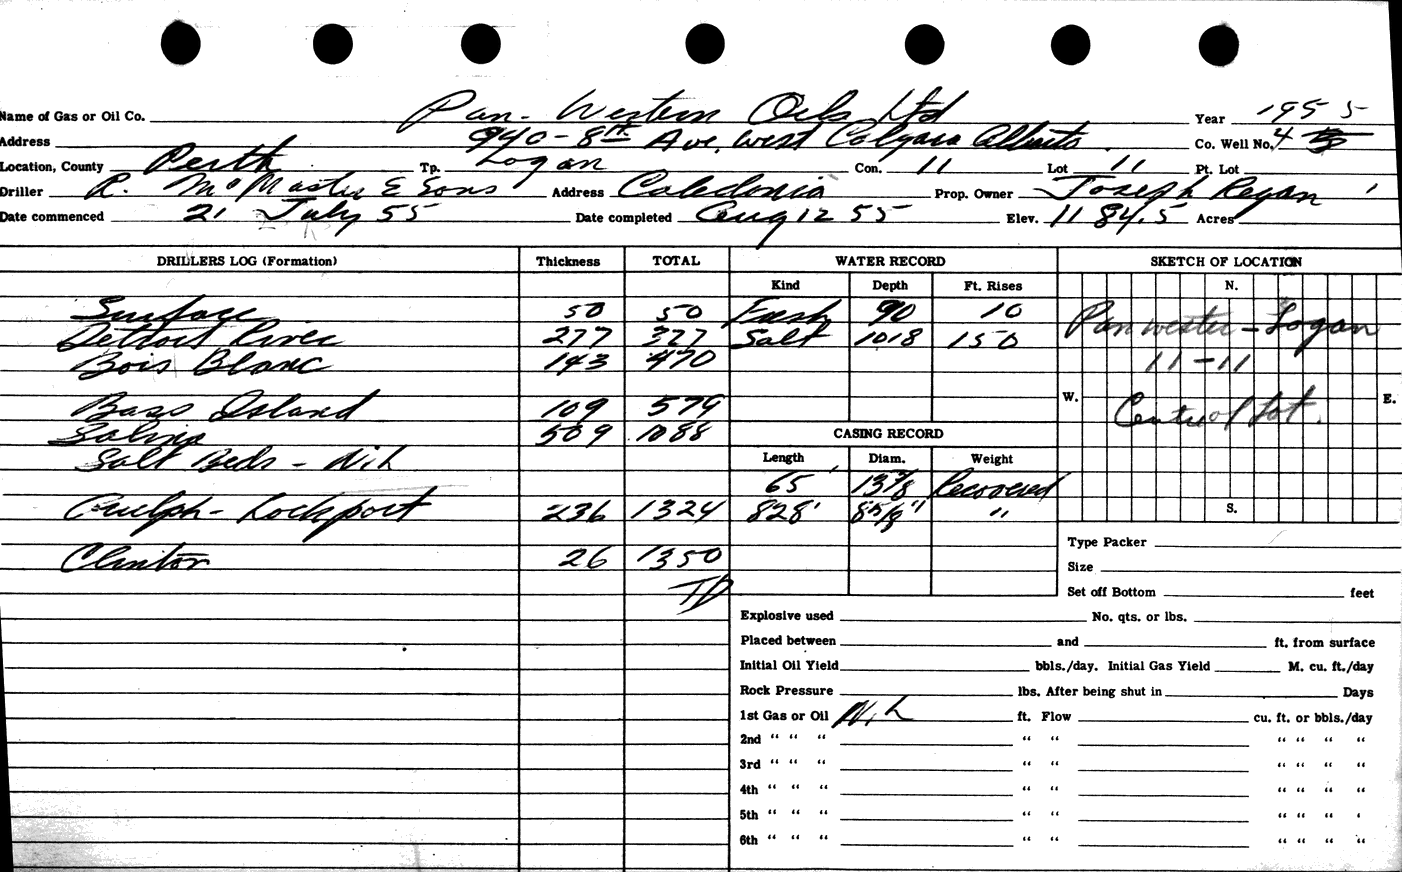 Name of Gas or Oil Co. Pan-Western Oils Ltd Year 1955
Address 940-8th Ave, West Calgary Alberta. Co. Well No. 4
Location, County Perth Tp. Logan Con. 11 Lot 11 Pt. Lot
Driller R. McMaster & Sons Address Caledonia Prop. Owner Joseph Regan
Date commenced 21 July 55 Date completed Aug 12 55 Elev. 1184.5 Acres
DRILLERS LOG (Formation) Thickness TOTAL WATER RECORD SKETCH OF LOCATION
Kind Depth Ft. Rises N.
Surface 50 50 Fresh 90 10
Detroit River 277 327 Salt 1018 150 Pan Wester - Logan
Bois Blanc 143 470 11-11
W. E.
Bass Island 109 579 Centre of Lot.
Salina 509 1088 CASING RECORD
Salt Beds - Nil Length Diam. Weight
65' 13 3/8 Recovered
Guelph - Lockport 236 1324 828' 8 5/8" " S.
Type Packer
Clinton 26 1350 Size
TD Set off Bottom feet
Explosive used No. qts. or lbs.
Placed between and ft. from surface
Initial Oil Yield bbls./day. Initial Gas Yield M. cu. ft./day
Rock Pressure lbs. After being shut in Days
1st Gas or Oil Nil ft. Flow cu. ft. or bbls./day
2nd " " " " " " " " "
3rd " " " " " " " " "
4th " " " " " " " " "
5th " " " " " " " " '
6th " " " " " " " " "